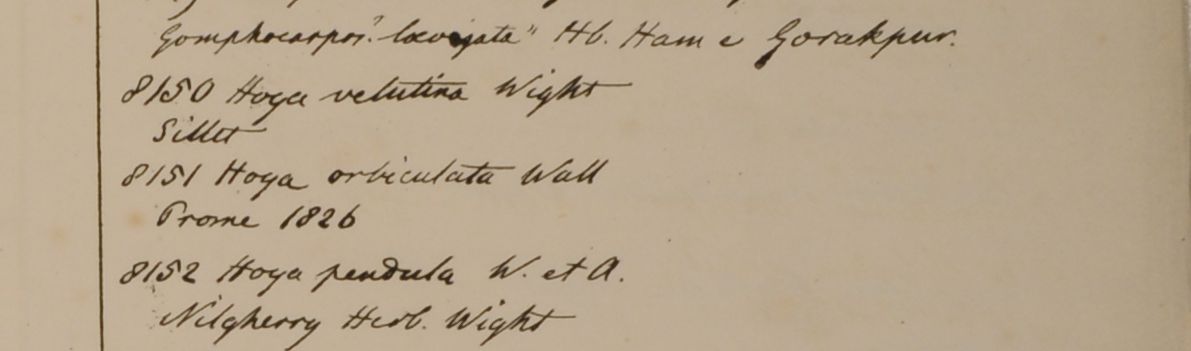 Gomphocarpos? lævigata" Hb. Ham e Gorakpur.
8150 Hoya velutina Wight
Sillet
8151 Hoya orbiculata Wall
Prome 1826
8152 Hoya pendula W. et A.
Nilgherry Herb. Wight